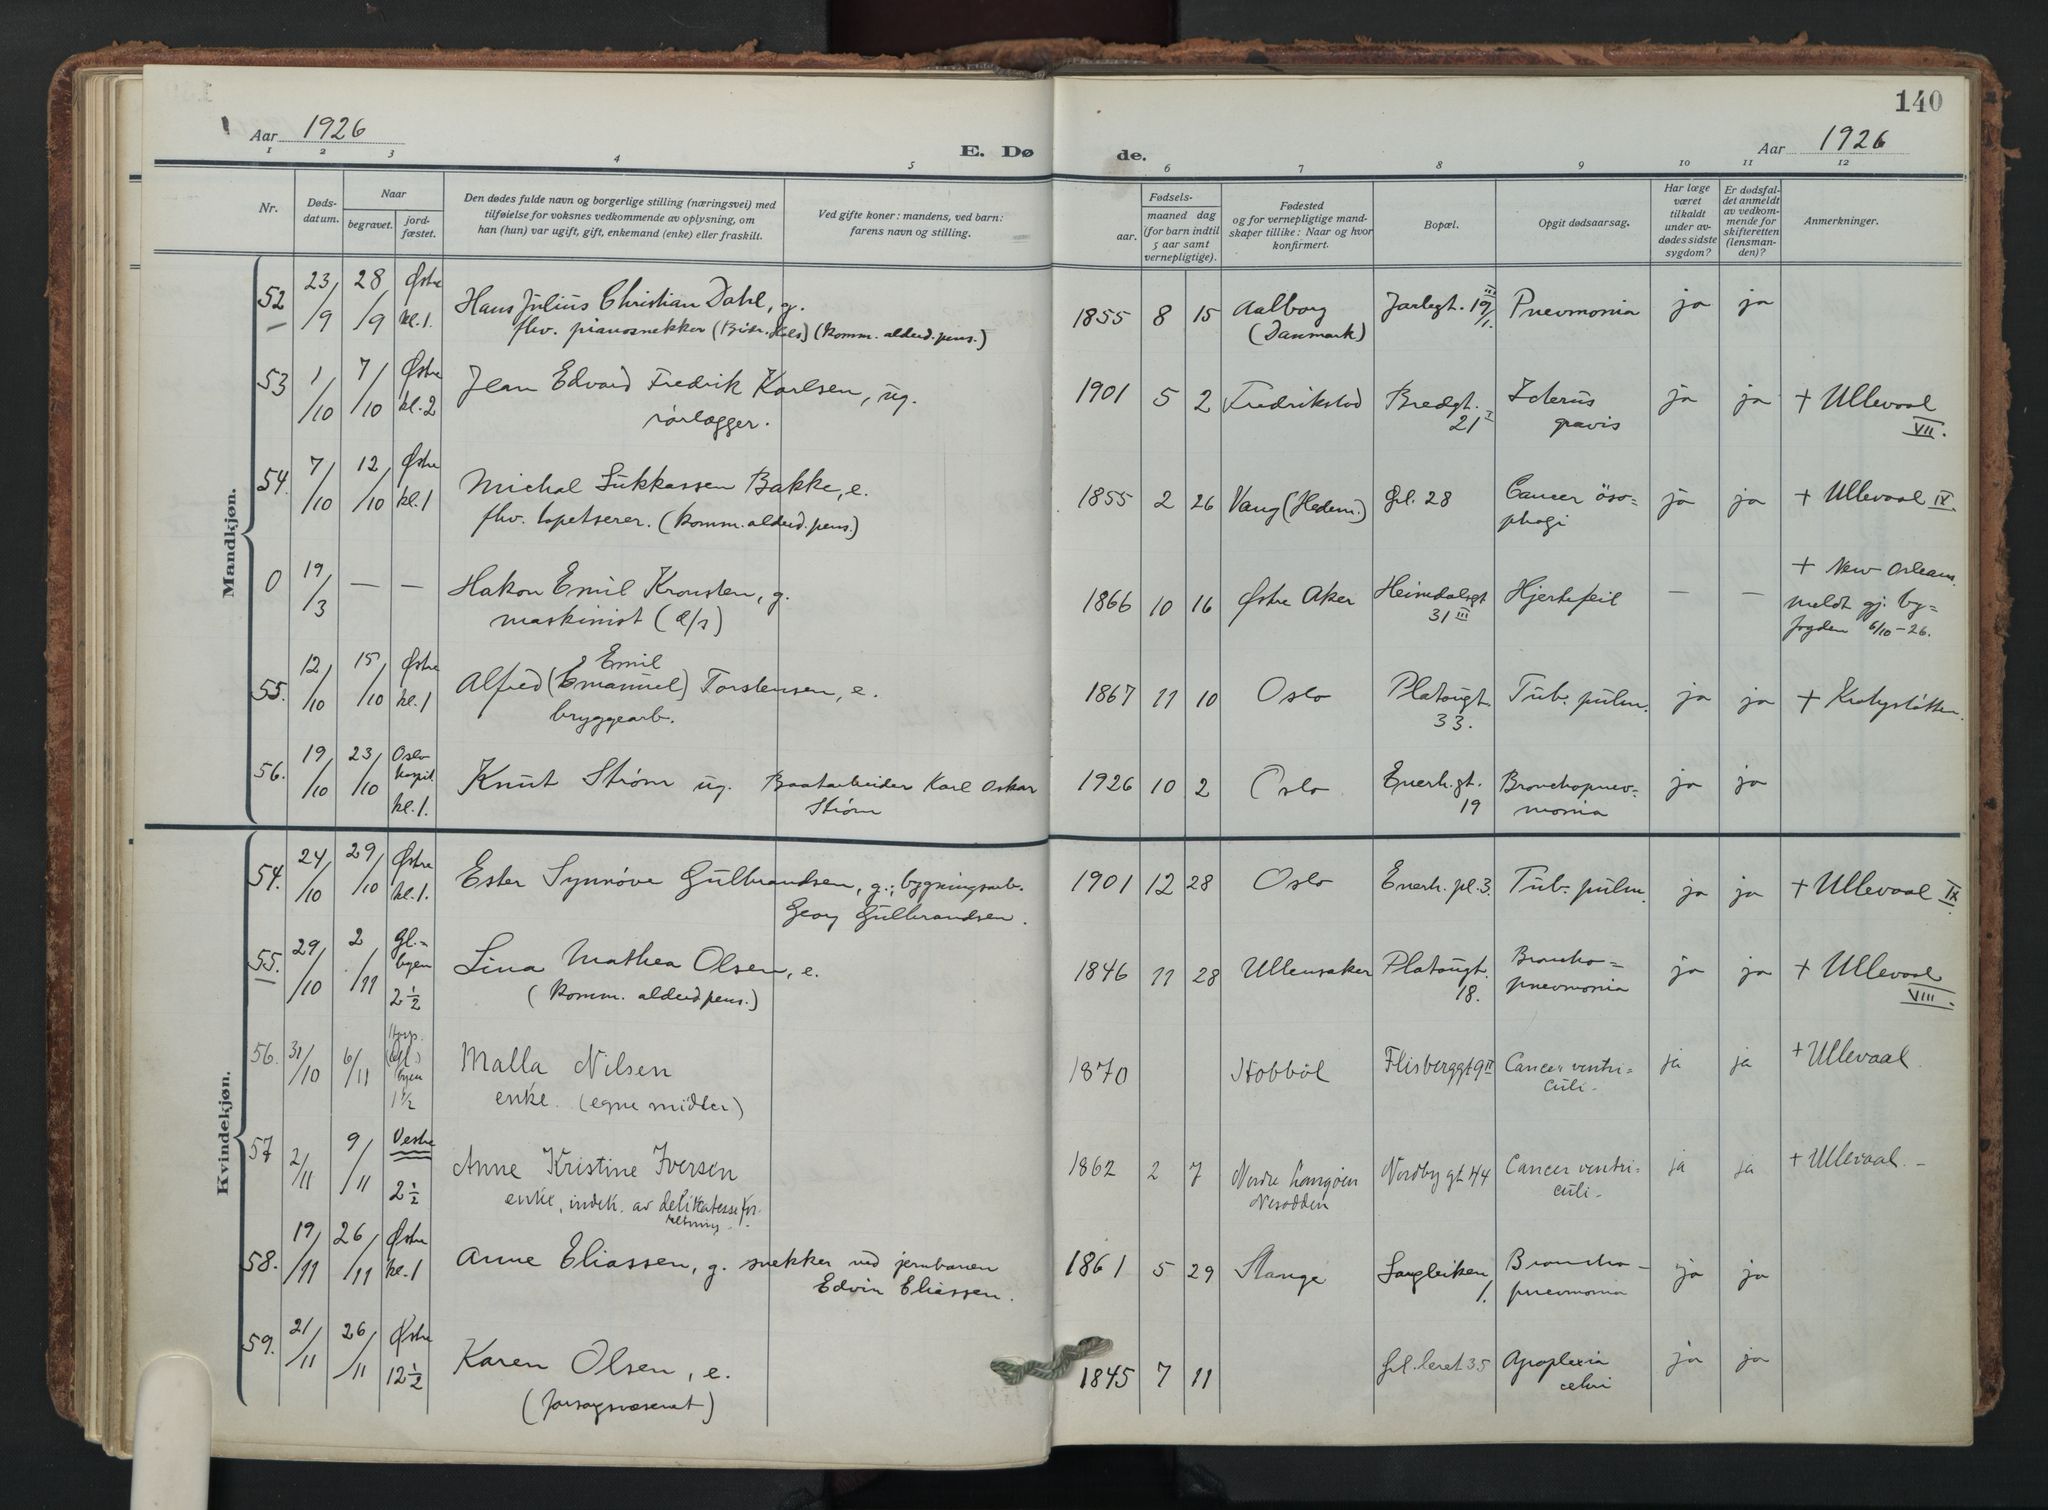 140
Aar 1926
E. Dø
de.
Aar 1926
1 2 3 4 5 6 7 8 9 10 11 12
Nr.
Døds-
datum.
Naar
begravet.
jord-
fæstet.
Den dødes fulde navn og borgerlige stilling (næringsvei) med
tilføielse for voksnes vedkommende av oplysning, om
han (hun) var ugift, gift, enkemand (enke) eller fraskilt.
Ved gifte koner: mandens, ved barn:
farens navn og stilling.
Fødsels-
aar.
maaned dag
(for barn indtil
5 aar samt
vernepligtige).
Fødested
og for vernepligtige mand-
skaper tillike: Naar og hvor
konfirmert.
Bopæl.
Opgit dødsaarsag.
Har læge
været
tilkaldt
under av-
dødes sidste
sygdom?
Er dødsfal-
det anmeldt
av vedkom-
mende for
skifteretten
(lensman-
den)?
Anmerkninger.
Mandkjøn.
52 23/9 28/9 Østre kl. 1. Hans Julius Christian Dahl, g. 1855 8 15 Aalborg Jarlegt. 19 III/1. Pneumonia ja ja
fhv. pianosnekker (komm. alderd. pens.) (Danmark)
53 1/10 7/10 Østre kl. 2 Jean Edvard Fredrik Karlsen, ug. 1901 5 2 Fredrikstad Bredgt. 21 I Icterus ja ja + Ullevaal
rørlægger. gravis VII.
54. 7/10 12/10 Østre kl. 1 Michal Lukkassen Bakke, e. 1855 2 26 Vang (Hedem.) Grl. 28 Cancer öso- ja ja + Ullevaal IX.
fhv. tapetserer. (komm. alderd. pens.) phagi
0 19/3 — — Hakon Emil Kronsten, g. 1866 10 16 Østre Aker Heimdalsgt. 31 III Hjertefeil — — + New Orleans.
maskinist (d/s) meldt gj. by-
fogden 6/10-26.
55. 12/10 15/10 Østre kl. 1 Alfred (Emanuel) Emil Torstensen, e. 1867 11 10 Oslo Platougt. 33. Tub. pulm. ja ja + Krohgstøtten.
bryggearb.
56. 19/10 23/10 Oslo hospit. kl. 1. Knut Strøm ug. Baatarbeider Karl Oskar 1926 10 2 Oslo Enerh.gt. 19 Bronchopnev- ja ja
Strøm monia
Kvindekjøn.
54. 24/10 29/10 Østre kl. 1. Ester Synnøve Gulbrandsen, g., bygningsarb. 1901 12 28 Oslo Enerh. pl. 3. Tub. pulm. ja ja + Ullevaal IX
Georg Gulbrandsen.
55. 29/10 2/11 Gl.-byen 2 1/2 Lina Mathea Olsen, e. 1846 11 28 Ullensaker Platougt. 18. Broncho- ja ja + Ullevaal
(komm. alderd pens.) pneumonia VIII.
56. 31/10 6/11 byen 1 1/2 Malla Nilsen 1870 Hobböl Flisberggt 9 II Cancer ventri- ja ja + Ullevaal
enke. (egne midler) culi.
57 2/11 9/11 Vestre 2 1/2 Anne Kristine Iversen 1862 2 7 Nordre Langöen Nordbygt 44 Cancer ventri- ja ja + Ullevaal. -
enke, indeh. av delikatessefor- Nesodden culi.
retning.
58. 19/11 26/11 Østre kl. 1 Anne Eliassen, g. snekker ved jernbanen 1861 5 29 Stange Langleiken 1. Broncho- ja ja
Edvin Eliassen. pneumonia
59. 21/11 26/11 Østre 12 1/2 Karen Olsen, e. 1845 7 11 Grl. leret 35 Apoplexia ja ja
(forsorgsvæsenet) cebri